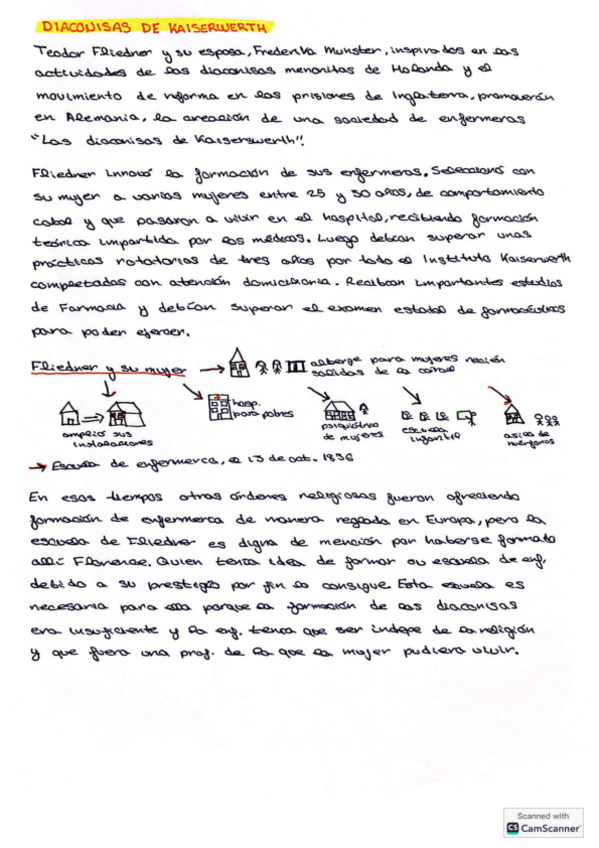 DIACONISAS DE KAISERWERTH
Teodor Fliedner y su esposa, Frederika Munster, inspirados en las
actividades de las diaconisas menonitas de Holanda y el
movimiento de reforma en las prisiones de Inglaterra, promoverán
en Alemania, la creación de una sociedad de enfermeras
"Las diaconisas de Kaiserswerth".
Fliedner innovó la formación de sus enfermeras. Seleccionó con
su mujer a varias mujeres entre 25 y 50 años, de comportamiento
cabal y que pasaron a vivir en el hospital, recibiendo formación
teórica impartida por los médicos. Luego debían superar unas
prácticas rotatorias de tres años por todo el Instituto Kaiserwerth
completadas con atención domiciliaria. Recibían importantes estudios
de Farmacia y debían superar el examen estatal de farmacéuticos
para poder ejercer.
Fliedner y su mujer → alberge para mujeres recién
salidas de la cárcel
amplió sus
instalaciones
hosp.
para pobres
psiquiátrico
de mujeres
escuela
infantil
asilo de
huérfanos
→ Escuela de enfermería, el 13 de oct. 1836
En esos tiempos otras órdenes religiosas fueron ofreciendo
formación de enfermería de manera reglada en Europa, pero la
escuela de Fliedner es digna de mención por haberse formado
allí Florence. Quien tenía idea de formar su escuela de enf,
debido a su prestigio por fin lo consigue. Esta escuela es
necesaria para ella porque la formación de las diaconisas
era insuficiente y la enf. tenía que ser indepe de la religión
y que fuera una prof. de la que la mujer pudiera vivir.
Scanned with
CS CamScanner